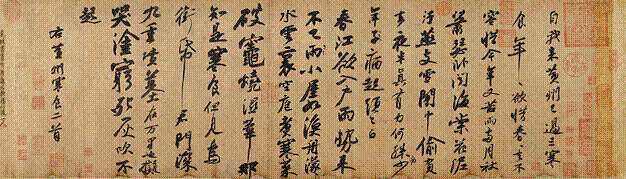 自我來黃州已過三寒
食年々欲惜春々去不
容惜今年又苦雨兩月秋
蕭瑟卧聞海棠花泥
汙燕支雪闇中偷負
去夜半真有力何殊少
年子病起頭已白
春江欲入戶雨勢來
不已雨小屋如漁舟濛々
水雲裏空庖煮寒菜
破竈燒濕葦那
知是寒食但見烏
銜帋君門深
九重墳墓在万里也擬
哭塗窮死灰吹不
起
右黃州寒食二首